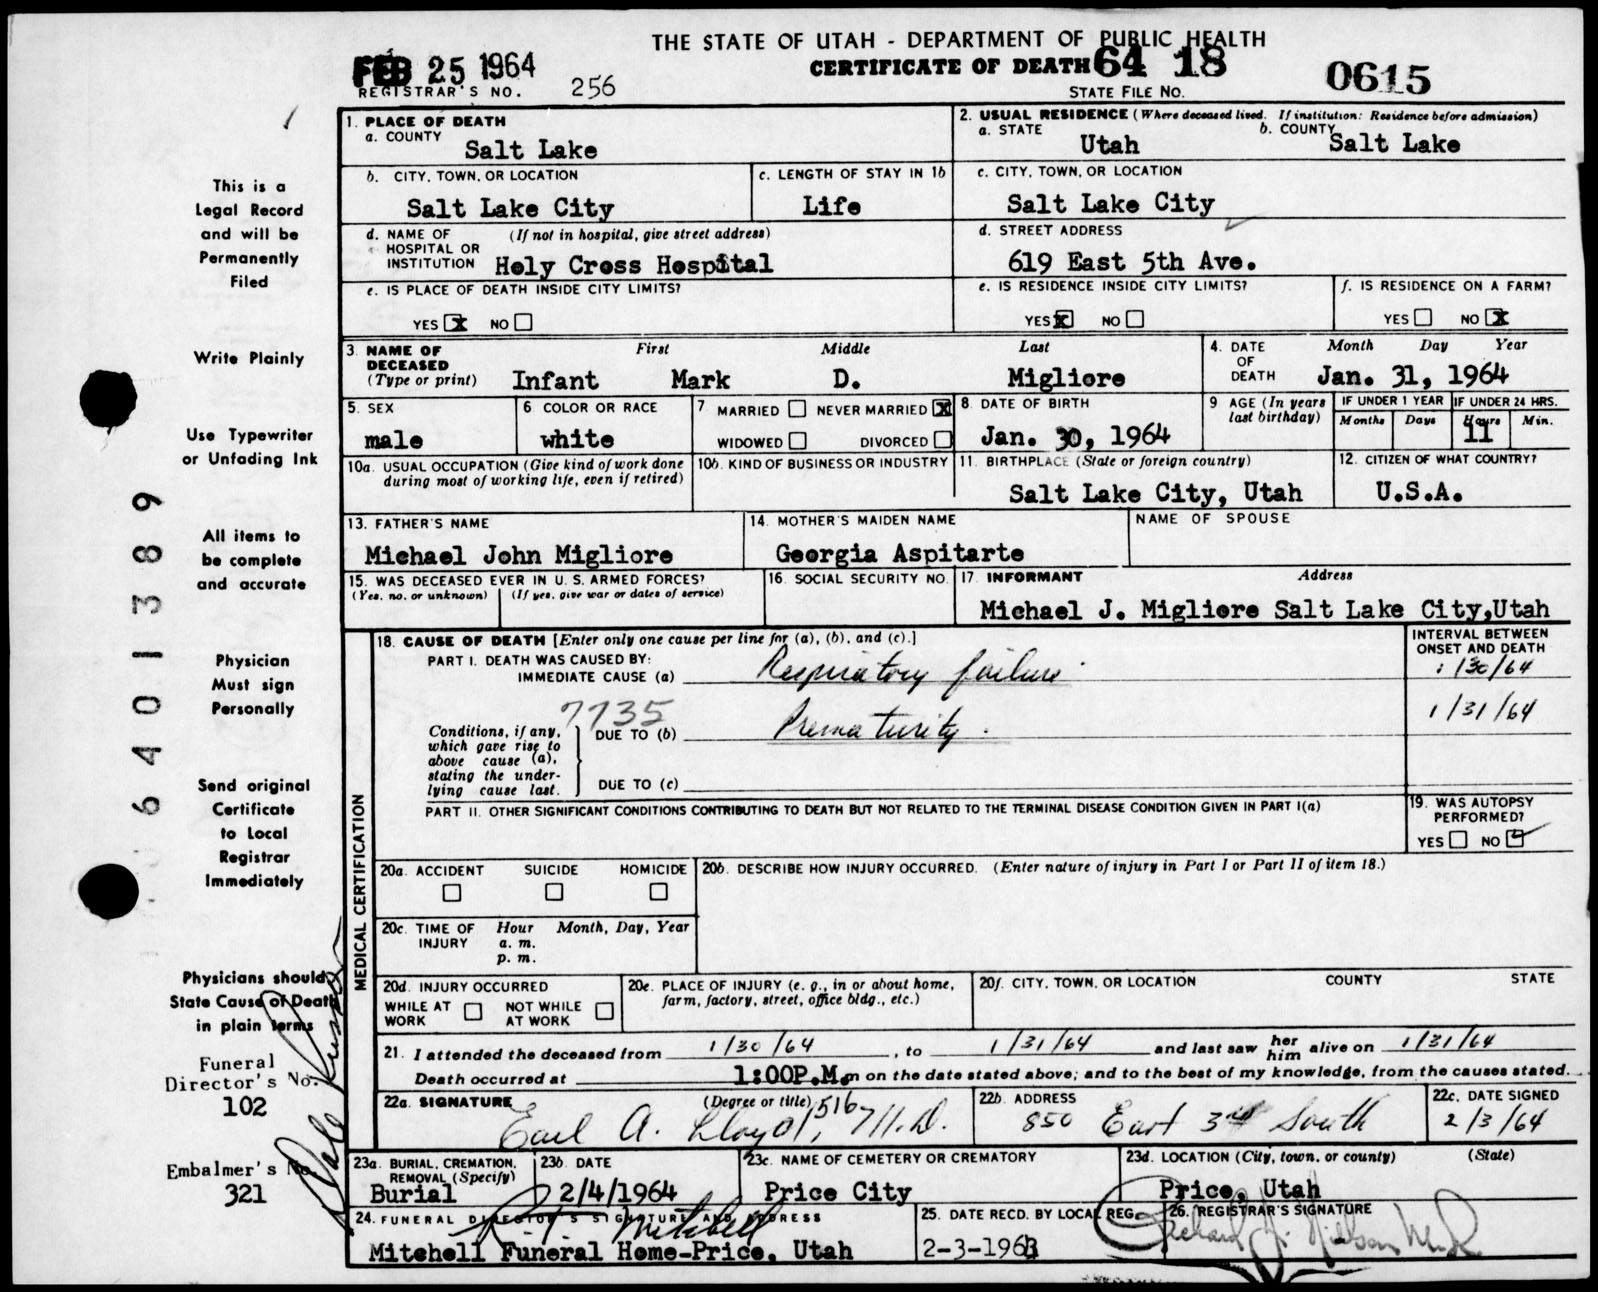 THE STATE OF UTAH - DEPARTMENT OF PUBLIC HEALTH
FEB 25 1964
CERTIFICATE OF DEATH 64 18 0615
REGISTRAR'S NO. 256
STATE FILE NO.
1. PLACE OF DEATH
a. COUNTY
Salt Lake
2. USUAL RESIDENCE (Where deceased lived. If institution: Residence before admission)
a. STATE b. COUNTY
Utah Salt Lake
b. CITY, TOWN, OR LOCATION
Salt Lake City
c. LENGTH OF STAY IN 1b
Life
c. CITY, TOWN, OR LOCATION
Salt Lake City
d. NAME OF HOSPITAL OR INSTITUTION (If not in hospital, give street address)
Holy Cross Hospital
d. STREET ADDRESS
619 East 5th Ave.
e. IS PLACE OF DEATH INSIDE CITY LIMITS?
YES x NO
e. IS RESIDENCE INSIDE CITY LIMITS?
YES x NO
f. IS RESIDENCE ON A FARM?
YES NO x
3. NAME OF DECEASED (Type or print)
First Middle Last
Infant Mark D. Migliore
4. DATE OF DEATH
Month Day Year
Jan. 31, 1964
5. SEX
male
6 COLOR OR RACE
white
7 MARRIED NEVER MARRIED x
WIDOWED DIVORCED
8. DATE OF BIRTH
Jan. 30, 1964
9 AGE (In years last birthday)
IF UNDER 1 YEAR
Months Days
IF UNDER 24 HRS.
Hours Min.
11
10a. USUAL OCCUPATION (Give kind of work done during most of working life, even if retired)
10b. KIND OF BUSINESS OR INDUSTRY
11. BIRTHPLACE (State or foreign country)
Salt Lake City, Utah
12. CITIZEN OF WHAT COUNTRY?
U.S.A.
13. FATHER'S NAME
Michael John Migliore
14. MOTHER'S MAIDEN NAME
Georgia Aspitarte
NAME OF SPOUSE
15. WAS DECEASED EVER IN U. S. ARMED FORCES?
(Yes, no, or unknown) (If yes, give war or dates of service)
16. SOCIAL SECURITY NO.
17. INFORMANT Address
Michael J. Migliore Salt Lake City,Utah
18. CAUSE OF DEATH [Enter only one cause per line for (a), (b), and (c).]
INTERVAL BETWEEN ONSET AND DEATH
PART I. DEATH WAS CAUSED BY:
IMMEDIATE CAUSE (a) Respiratory failure 1/30/64
7735
Conditions, if any, which gave rise to above cause (a), stating the underlying cause last.
DUE TO (b) Prematurity. 1/31/64
DUE TO (c)
PART II. OTHER SIGNIFICANT CONDITIONS CONTRIBUTING TO DEATH BUT NOT RELATED TO THE TERMINAL DISEASE CONDITION GIVEN IN PART I(a)
19. WAS AUTOPSY PERFORMED?
YES NO ✓
MEDICAL CERTIFICATION
20a. ACCIDENT SUICIDE HOMICIDE
20b. DESCRIBE HOW INJURY OCCURRED. (Enter nature of injury in Part I or Part II of item 18.)
20c. TIME OF INJURY Hour Month, Day, Year
a. m.
p. m.
20d. INJURY OCCURRED
WHILE AT WORK NOT WHILE AT WORK
20e. PLACE OF INJURY (e. g., in or about home, farm, factory, street, office bldg., etc.)
20f. CITY, TOWN, OR LOCATION COUNTY STATE
21. I attended the deceased from 1/30/64, to 1/31/64 and last saw her him alive on 1/31/64
Death occurred at 1:00P.M. m on the date stated above; and to the best of my knowledge, from the causes stated.
22a. SIGNATURE (Degree or title)
Earl A. Lloyd, 1516 M.D.
22b. ADDRESS
850 East 3rd South
22c. DATE SIGNED
2/3/64
23a. BURIAL, CREMATION, REMOVAL (Specify)
Burial
23b. DATE
2/4/1964
23c. NAME OF CEMETERY OR CREMATORY
Price City
23d. LOCATION (City, town, or county) (State)
Price, Utah
24. FUNERAL DIRECTOR'S SIGNATURE AND ADDRESS
Mitchell
Mitchell Funeral Home-Price, Utah
25. DATE RECD. BY LOCAL REG.
2-3-1964
26. REGISTRAR'S SIGNATURE
This is a
Legal Record
and will be
Permanently
Filed
Write Plainly
Use Typewriter
or Unfading Ink
All items to
be complete
and accurate
Physician
Must sign
Personally
Send original
Certificate
to Local
Registrar
Immediately
Physicians should
State Cause of Death
in plain terms
Funeral
Director's No.
102
Embalmer's No.
321
6401389